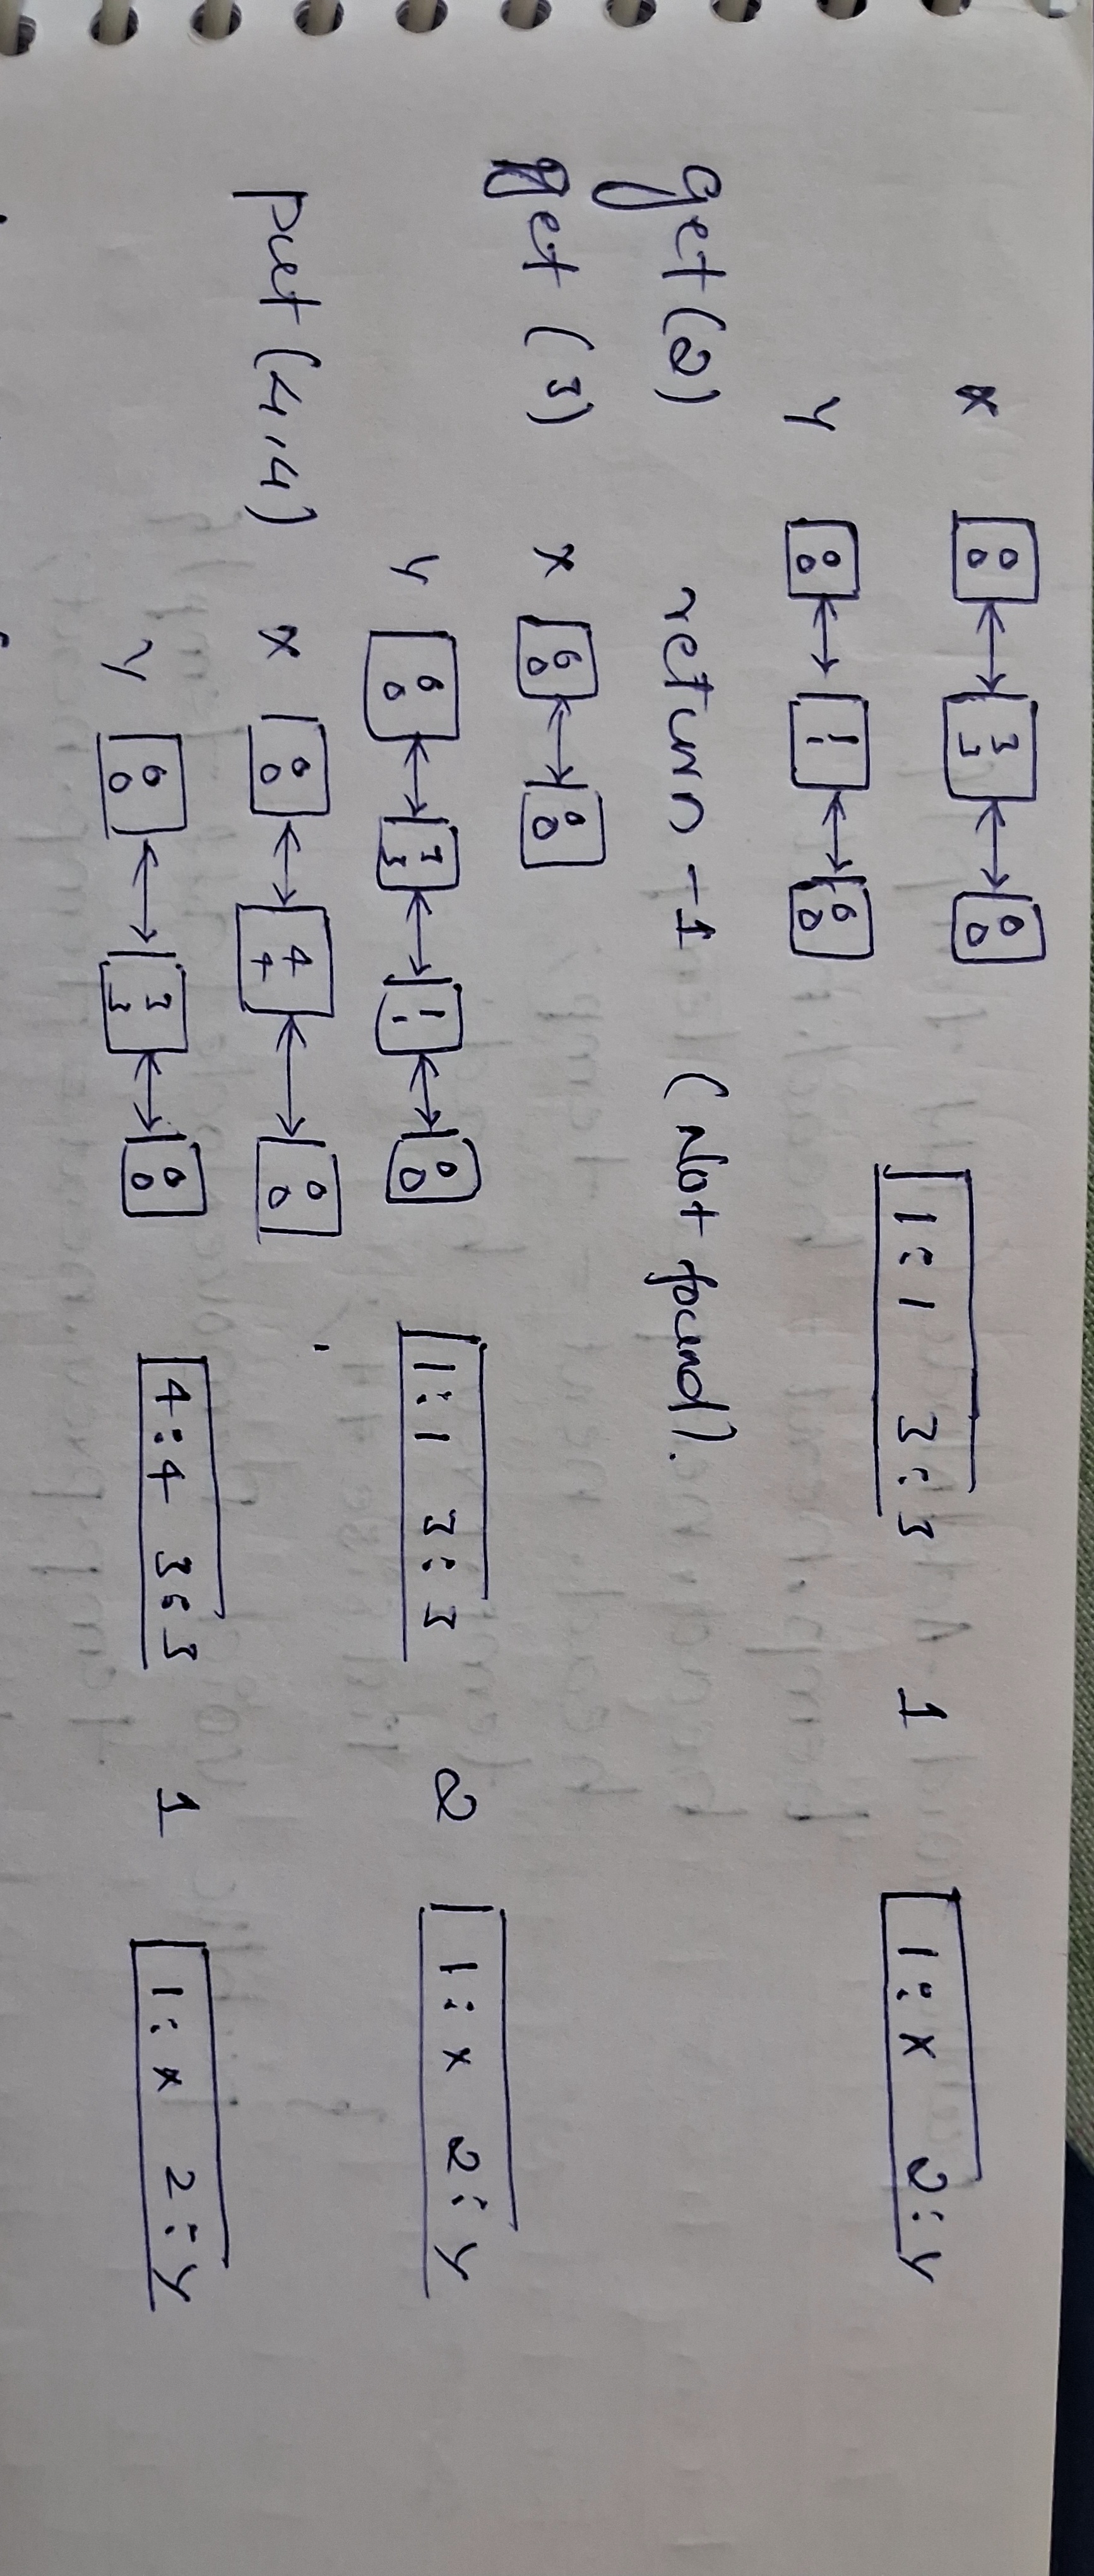 x 0 0 ↔ 3 3 ↔ 0 0
1:1 3:3 1 1:x 2:y
y 0 0 ↔ 1 1 ↔ 0 0
get(2) return -1 (Not found).
get (3) x 0 0 ↔ 0 0
y 0 0 ↔ 3 3 ↔ 1 1 ↔ 0 0 1:1 3:3 2 1:x 2:y
put (4,4) x 0 0 ↔ 4 4 ↔ 0 0
y 0 0 ↔ 3 3 ↔ 0 0 4:4 3:3 1 1:x 2:y